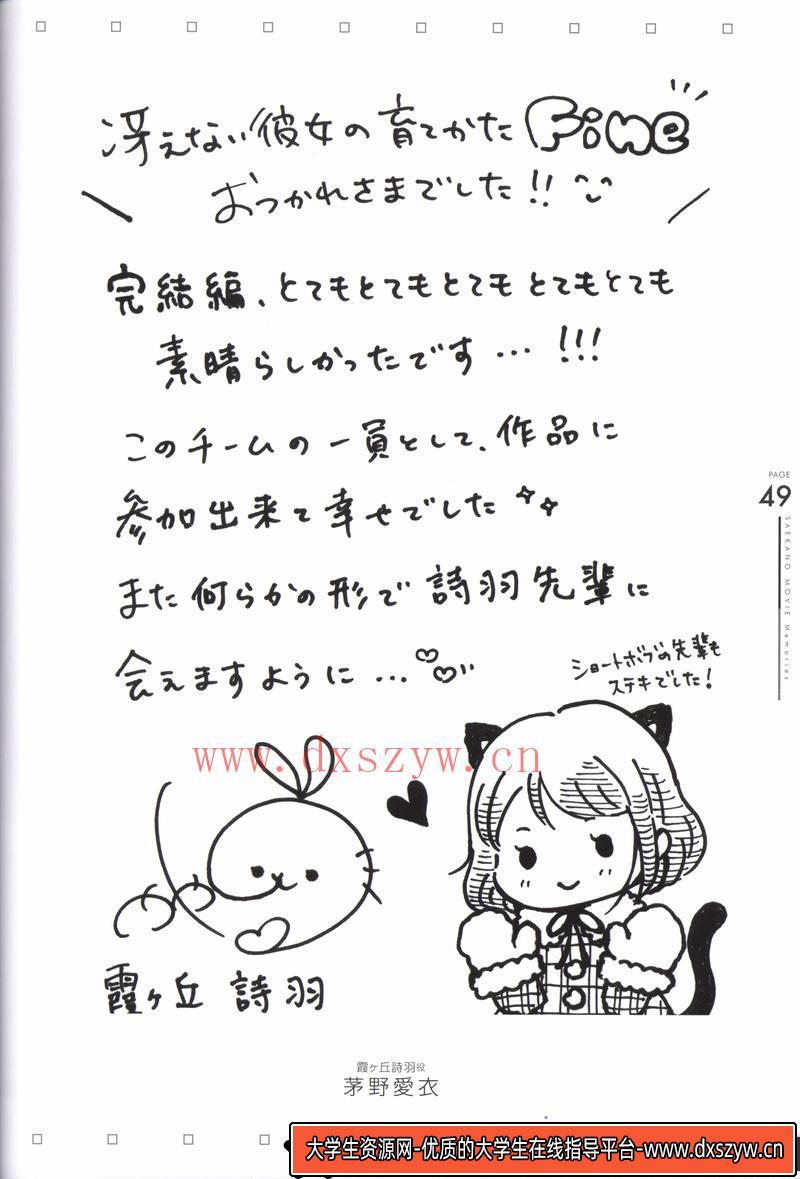 冴えない彼女の育てかた Fine
おつかれさまでした!!
完結編、とてもとてもとてもとてもとても
素晴らしかったです…!!!
このチームの一員として、作品に
参加出来て幸せでした
また何らかの形で詩羽先輩に
会えますように…
ショートボブの先輩も
ステキでした!
www.dxszyw.cn
霞ヶ丘 詩羽
霞ヶ丘詩羽役
茅野愛衣
PAGE
49
SAEKANO MOVIE Memories
大学生资源网-优质的大学生在线指导平台-www.dxszyw.cn